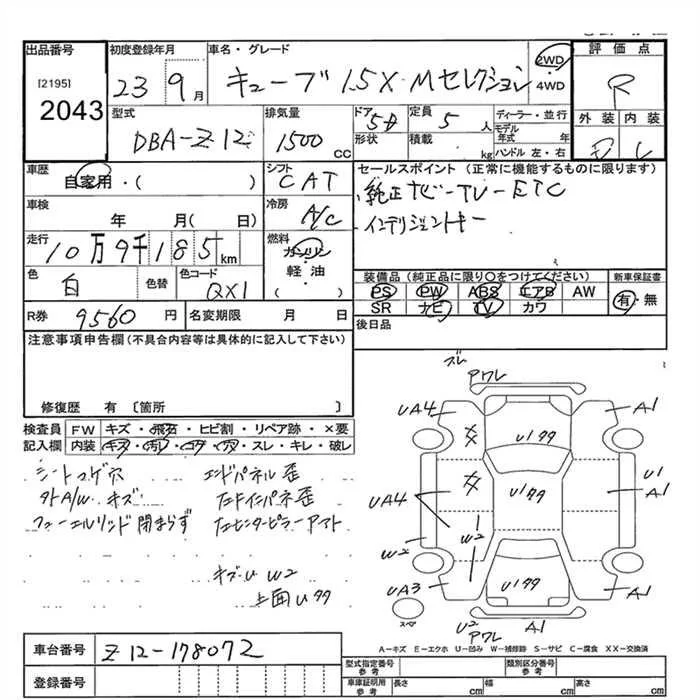 出品番号
[2195]
2043
初度登録年月
23 9月
車名・グレード
キューブ 15X・Mセレクション
2WD
・
4WD
評価点
R
外装 内装
型式
DBA-Z12
排気量
1500 CC
ドア
形状
5D
定員
5 人
積載
kg
ディーラー・並行
モデル
年式 年
ハンドル 左・右
車歴
自家用・( )
シフト
CAT
セールスポイント (正常に機能するものに限ります)
純正ナビ-TV-ETC
インテリジェントキー
車検
年 月( 日)
冷房
A/C
走行
10万9千185 km
燃料
ガソリン
軽・油
( )
色
白
色替
色コード
QX1
装備品 (純正品に限り○をつけてください)
新車保証書
PS PW ABS エアB AW
SR ナビ TV カワ
有・無
R券 9560 円
名変期限 月 日
後日品
注意事項申告欄 (不具合内容等は具体的に記入して下さい)
修復歴 有 〔箇所 〕
検査員
記入欄
FW キズ・飛石・ヒビ割・リペア跡・×要
内装 キズ・汚レ・コゲ・穴・スレ・キレ・破レ
シートコゲ穴
外A/Wキズ
フューエルリッド閉まらず
エンドパネル歪
キズU W2
上面U99
ズレ
アワレ
UA4
A1
U199
U1
A1
UA4
U199
W2
W2
UA3
U199
A1
スペア
U2
アワレ
A1
A-キズ E-エクボ U-凹み W-補修跡 S-サビ C-腐食 XX-交換済
車台番号
Z12-178072
登録番号
型式指定番号
参考
類別区分番号
参考
車庫証明用
参考
長さ cm
幅 cm
高さ cm